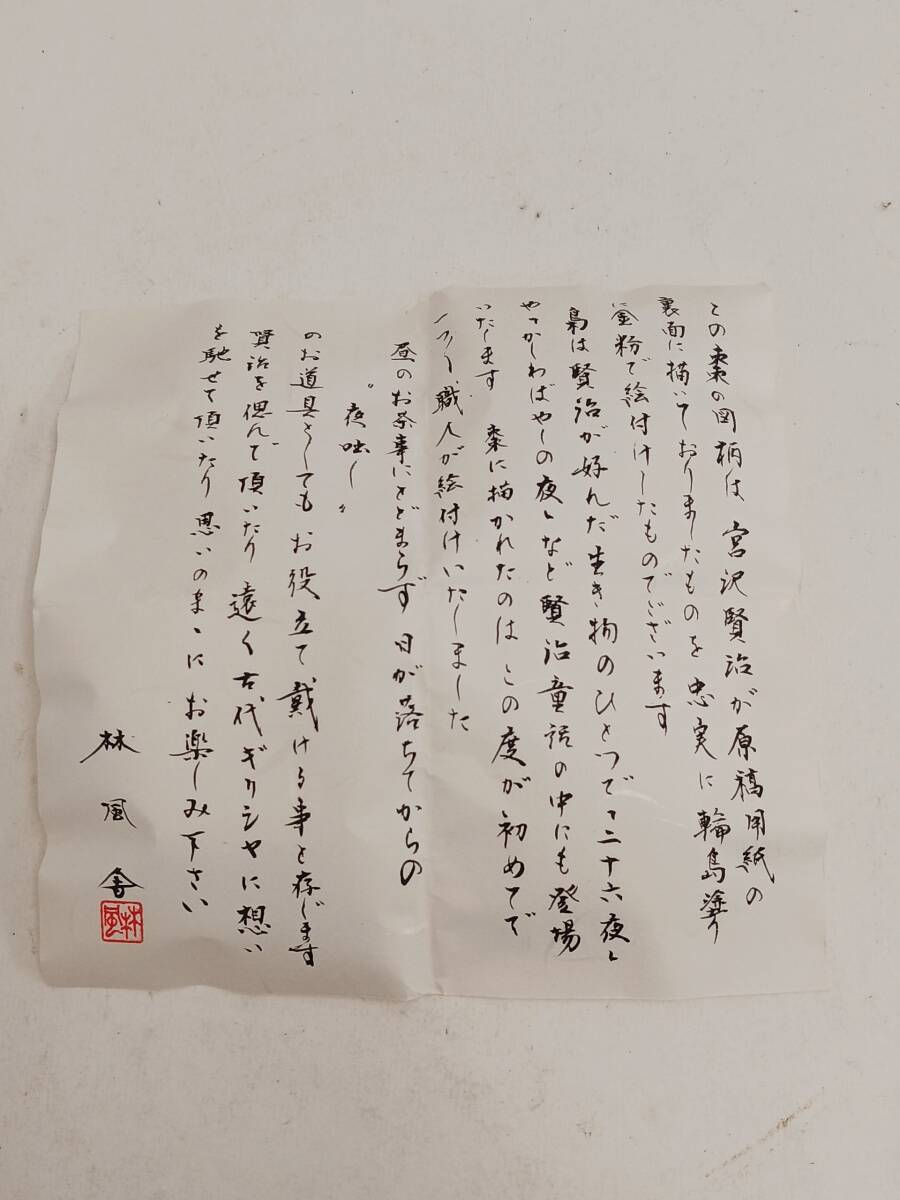 この棗の図柄は 宮沢賢治が原稿用紙の
裏面に描いておりましたものを忠実に輪島塗り
に金粉で絵付けしたものでございます
梟は賢治が好んだ生き物のひとつで「二十六夜」
や「かしわばやしの夜」など賢治童話の中にも登場
いたします 棗に描かれたのはこの度が初めてで
職人が絵付けいたしました
昼のお茶事にとどまらず 日が落ちてからの
"夜咄し"
のお道具としてもお役立て戴ける事と存じます
賢治を偲んで頂いたり 遠く古代ギリシャに想い
を馳せて頂いたり 思いのまゝにお楽しみ下さい
林風舎
林風